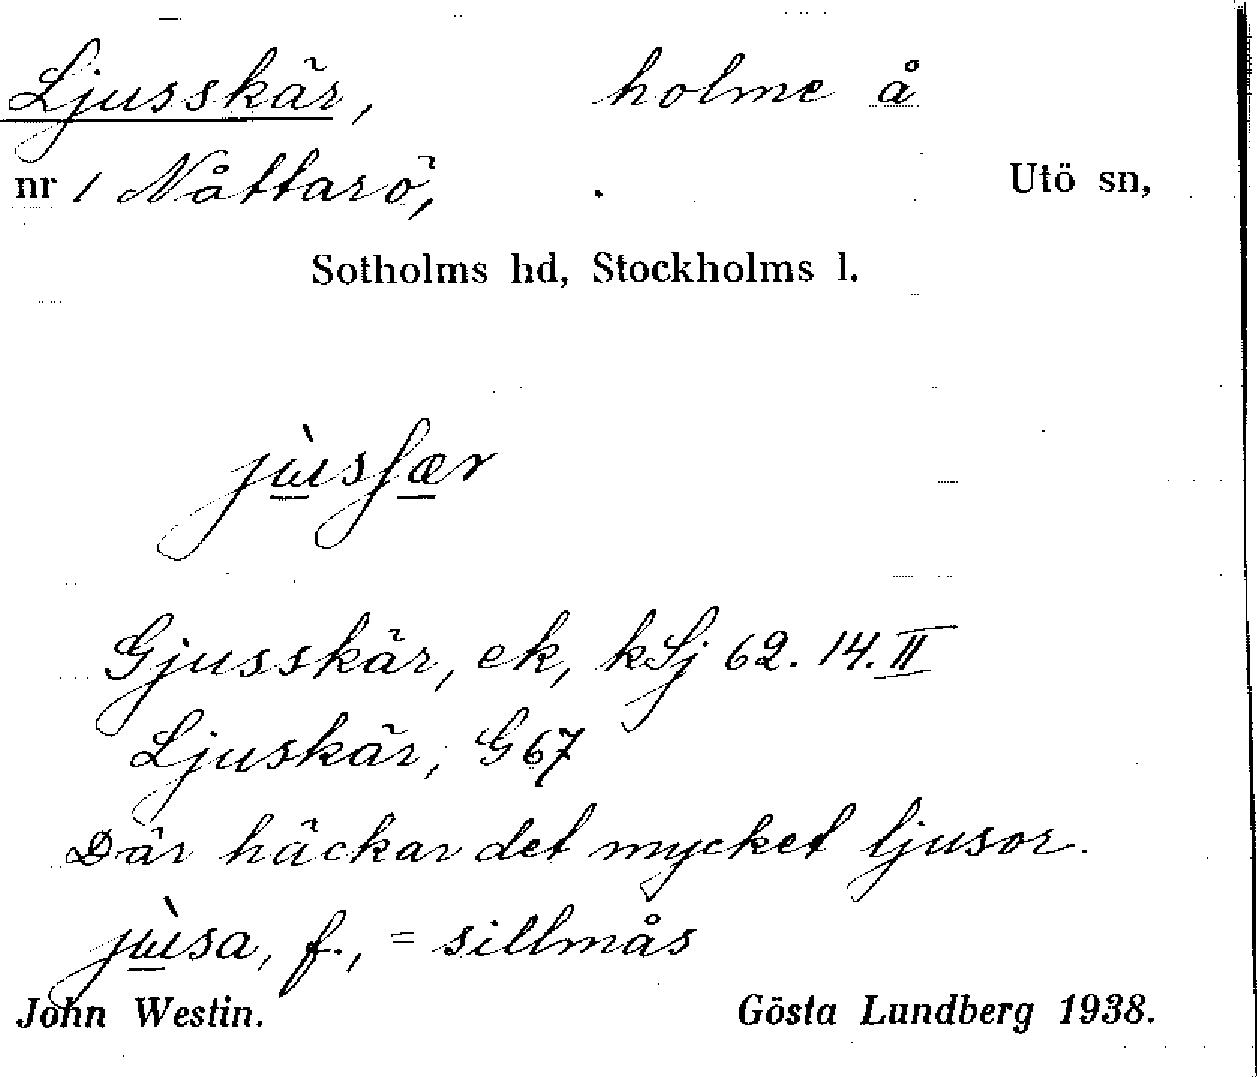 Ljusskär, holme å
nr 1 Nåttarö, Utö sn,
Sotholms hd, Stockholms l.
jɯ̀sʃær
Gjusskär, ek, kSj 62. 14. II
Ljuskär, G 67
Där häckar det mycket ljusor.
jɯ̀sa, f., = sillmås
John Westin. Gösta Lundberg 1938.